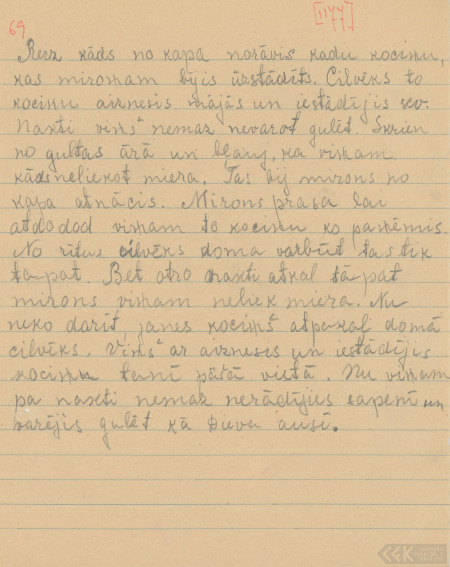 69
[1177]
Reiz kāds no kapa norāvis kadu kociņu,
kas miroņam bijis uzstādīts. Cilvēks to
kociņu aiznesis mājās un iestādījis sev.
Naktī viņš nemaz nevarot gulēt. Skrien
no gultas ārā un bļauj, ka viņam
kāds neliekot miera. Tas bij mirons no
kapa atnācis. Mirons prasa lai
atdodod viņam to kociņu ko paņēmis.
No rītus cilvēks doma varbūt tas tik
tāpat. Bet otro nakti atkal tāpat
mirons viņam neliek miera. Nu
neko darīt janes kociņš atpakaļ domā
cilvēks. Viņš ar aiznesis un iestādījis
kociņu tanī pāšā vietā. Nu viņam
pa nakti nemaz nerādījies sapenī un
varējis gulēt kā Dieva ausī.